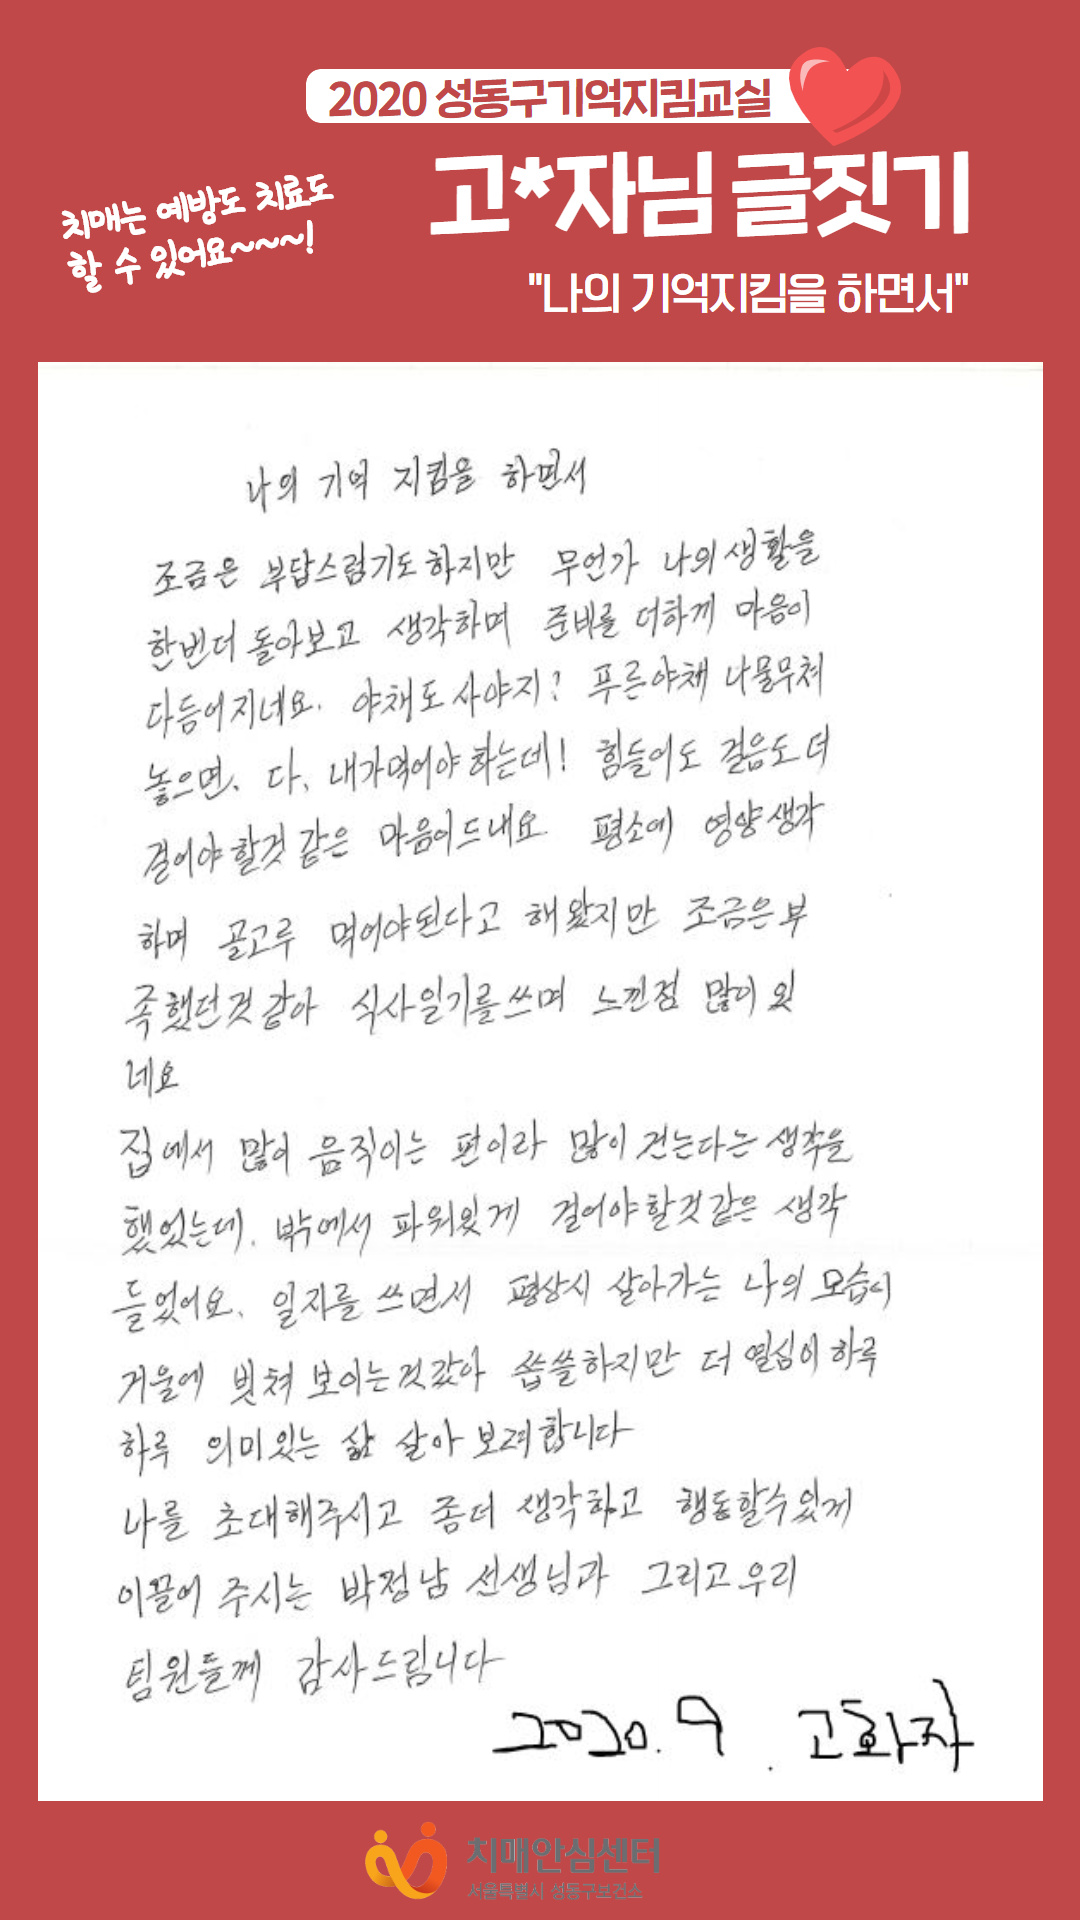 2020 성동구기억지킴교실
고*자님 글짓기
치매는 예방도 치료도
할 수 있어요~~~!
"나의 기억지킴을 하면서"
나의 기억 지킴을 하면서
조금은 부답스럼기도하지만 무언가 나의생활을
한번더 돌아보고 생각하며 준비를 더하게 마음이
다듬어지네요. 야채도사야지? 푸른야채 나물무쳐
놓으면、다、내가먹어야하는데! 힘들어도 걸음도더
걸어야할것같은 마음이드내요 평소에 영양생각
하며 골고루 먹어야된다고 해왔지만 조금은부
족했던것같아 식사일기를쓰며 느낀점 많이 있
네요
집에서 많이 음직이는 편이라 많이 걷는다는생각을
했었는데. 밖에서 파워있게 걸어야할것같은 생각
들었어요. 일지를 쓰면서 평상시 살아가는 나의 모습이
거울에 빗쳐 보이는것같아 씁쓸하지만 더 열심히하루
하루 의미있는 삶 살아 보려합니다
나를 초대해주시고 좀더 생각하고 행동할수있게
이끌어 주시는 박정남 선생님과 그리고우리
팀원들께 감사드립니다
2020.9. 고화자
치매안심센터
서울특별시 성동구보건소